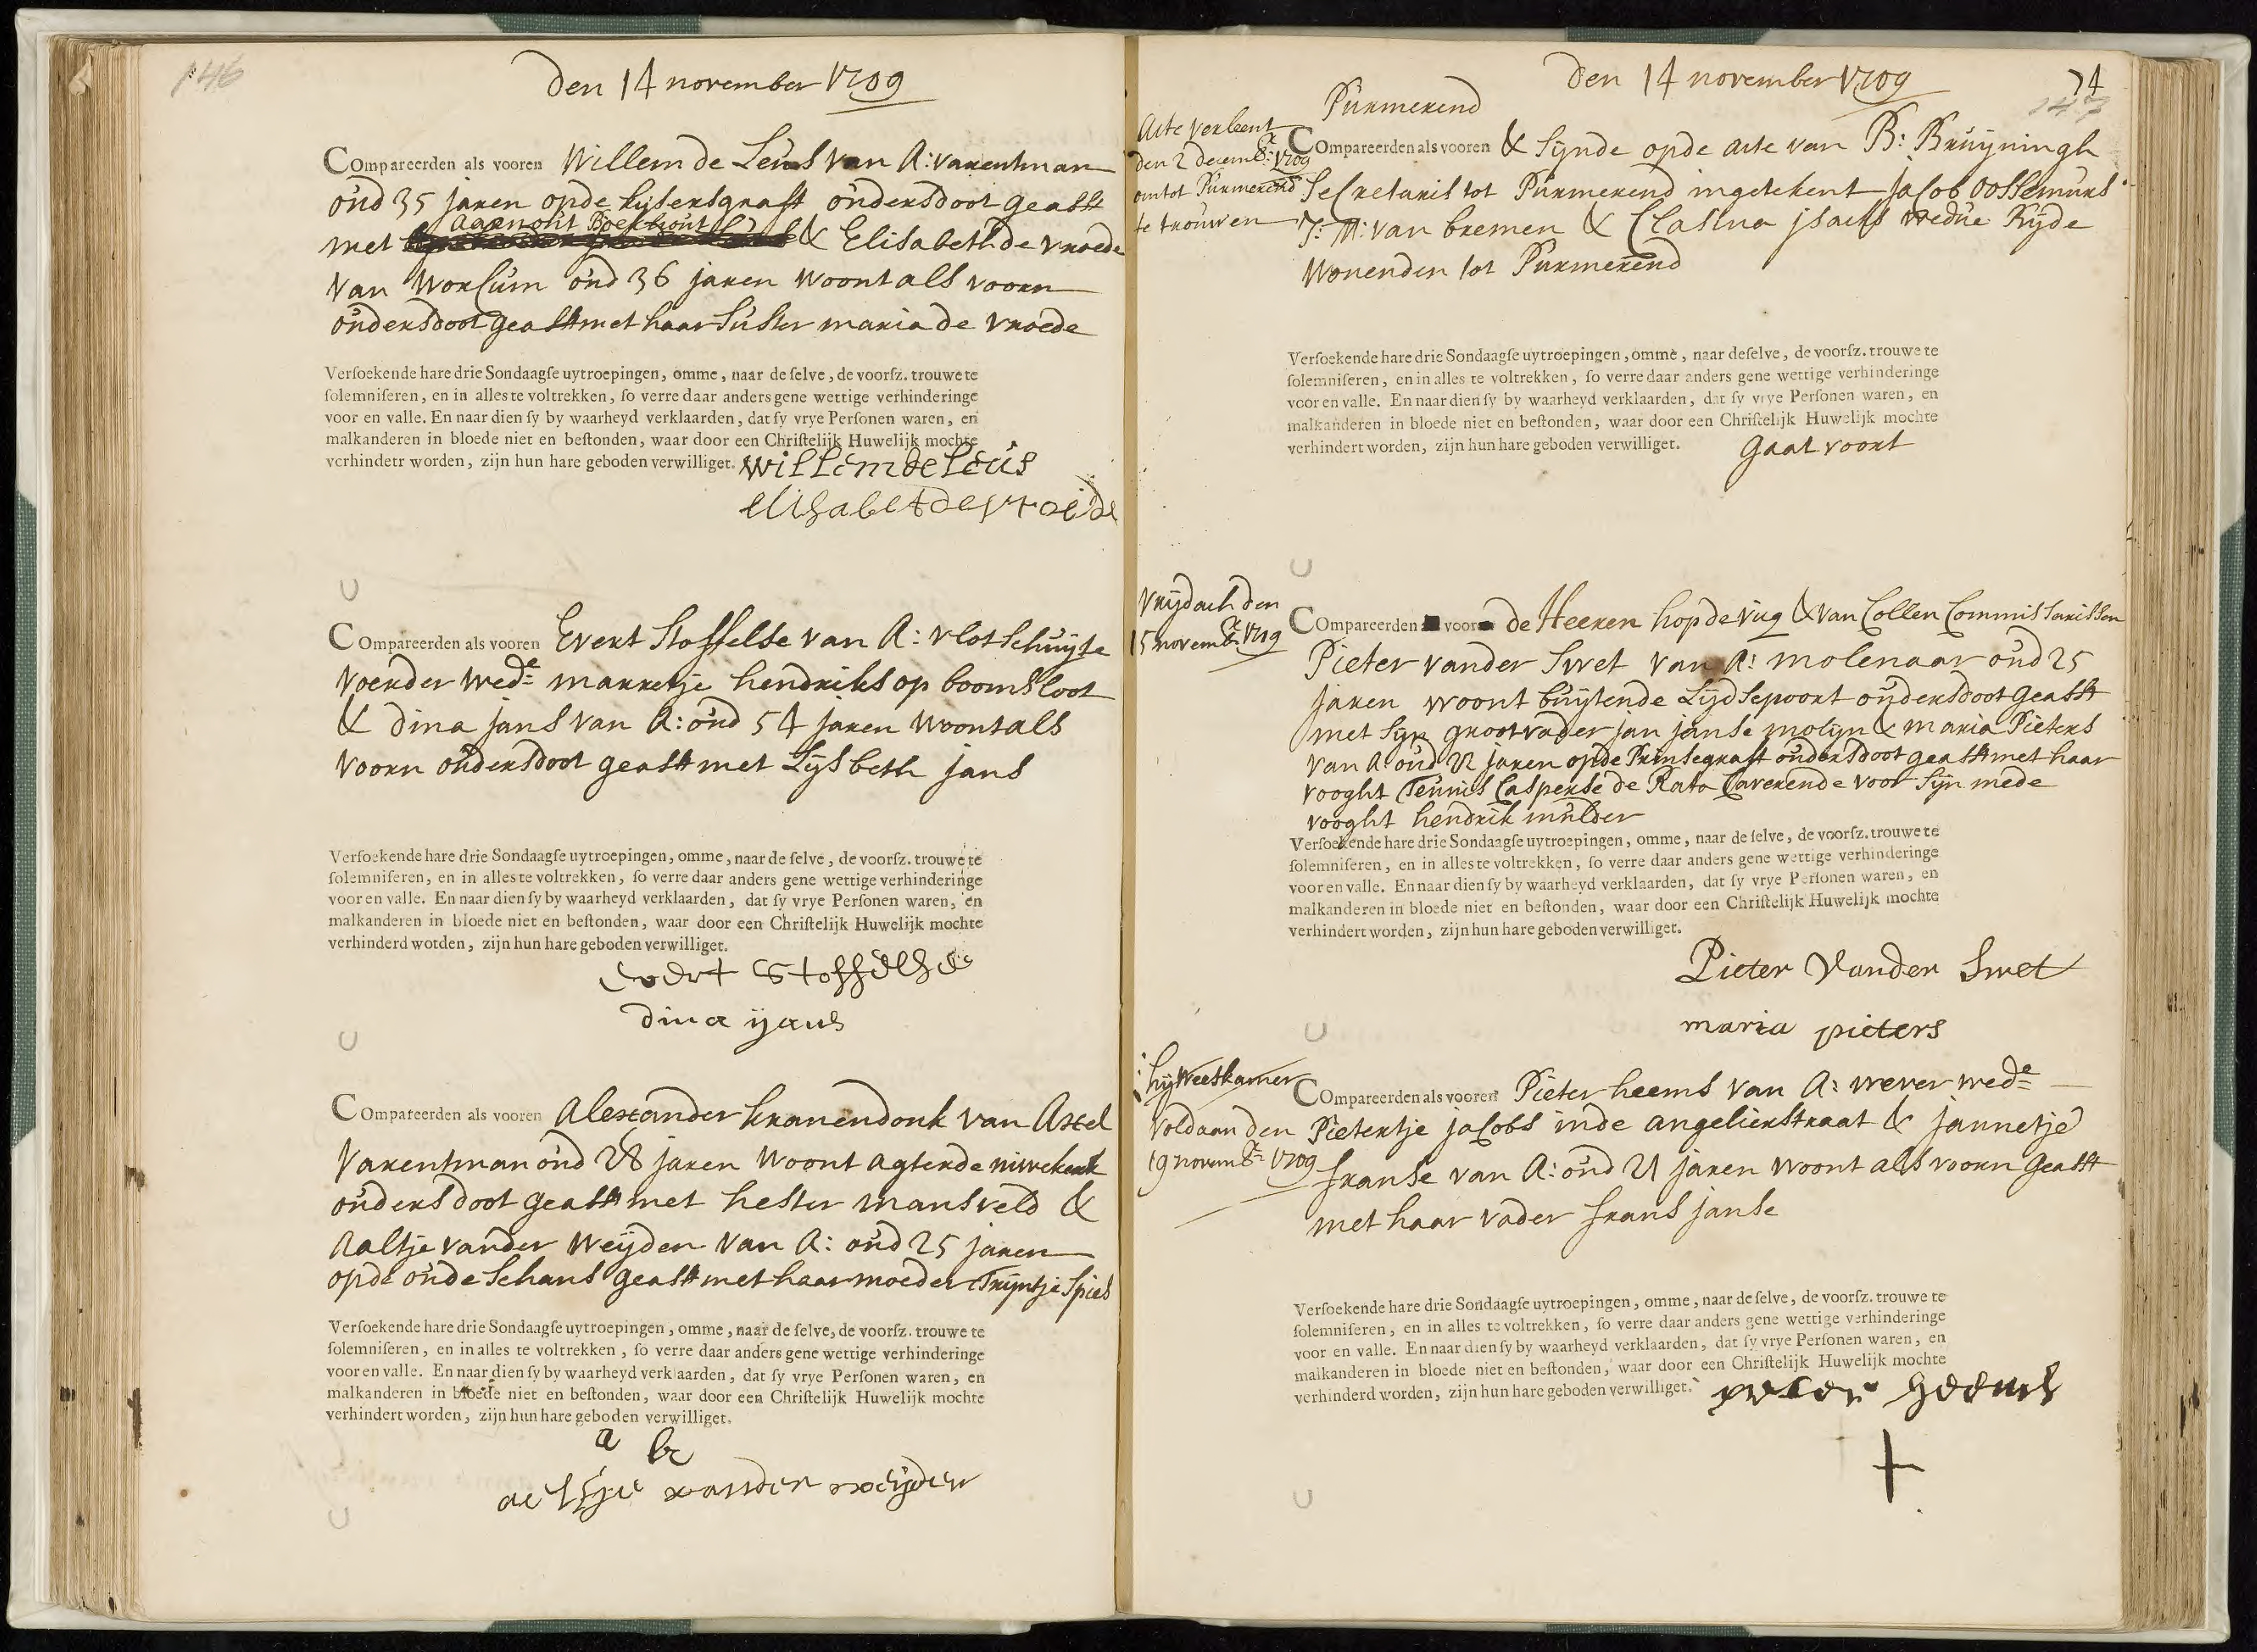 146
Den 14 november 1709
Compareerden als vooren Willem de Leus van A: varentman
oud 35 jaren opde kijsersgraft oudersdoot geasst
Aarnout Boekhout
met & Elisabeth de vroede
van Worcum oud 36 jaren woont als voorn
oudersdoot geasst met haar suster maria de vroede
Verſoekende hare drie Sondaagſe uytroepingen, omme, naar de ſelve, de voorſz. trouwe te
ſolemniſeren, en in alles te voltrekken, ſo verre daar anders gene wettige verhinderinge
voor en valle. En naar dien ſy by waarheyd verklaarden, dat ſy vrye Perſonen waren, en
malkanderen in bloede niet en beſtonden, waar door een Chriſtelijk Huwelijk mochte
verhindetr worden, zijn hun hare geboden verwilliget. willem de leus
elisabet de vroede
Compareerden als vooren Evert Stoffelse van A: vlotschuijte
voerder wede marretje hendriks op boomsloot
& dina jans van A: oud 54 jaren woont als
voorn oudersdoot geasst met Lijsbeth jans
Verſoekende hare drie Sondaagſe uytroepingen, omme, naar de ſelve, de voorſz. trouwe te
ſolemniſeren, en in alles te voltrekken, ſo verre daar anders gene wettige verhinderinge
voor en valle. En naar dien ſy by waarheyd verklaarden, dat ſy vrye Perſonen waren, en
malkanderen in bloede niet en beſtonden, waar door een Chriſtelijk Huwelijk mochte
verhinderd wotden, zijn hun hare geboden verwilliget.
evert Stoffelse
dina ijans
Compareerden als vooren Alexander kranendonk van Axel
varentman oud 28 jaren woont agterde niwekerk
oudersdoot geasst met hester mansveld &
Aaltje vander Weijden van A: oud 25 jaren
opde oude Schans geasst met haar moeder Trijntje Spies
Verſoekende hare drie Sondaagſe uytroepingen, omme, naar de ſelve, de voorſz. trouwe te
ſolemniſeren, en in alles te voltrekken, ſo verre daar anders gene wettige verhinderinge
voor en valle. En naar dien ſy by waarheyd verklaarden, dat ſy vrye Perſonen waren, en
malkanderen in bloede niet en beſtonden, waar door een Chriſtelijk Huwelijk mochte
verhindert worden, zijn hun hare geboden verwilliget.
a k
aeltje vander weijden
Den 14 november 1709
74
147
Purmerend
Acte verleent
den 2 decembr: 1709
omtot Purmerend
te trouwen
Compareerden als vooren & sijnde opde acte van B: Bruijningh
Secretaris tot Purmerend ingetekent jacob oossemurs
J: M: van bremen & Clasina jsacks wedue Rijde
wonenden tot Purmerend
Verſoekende hare drie Sondaagſe uytroepingen, omme, naar deſelve, de voorſz. trouwe te
ſolemniſeren, en in alles te voltrekken, ſo verre daar anders gene wettige verhinderinge
voor en valle. En naar dien ſy by waarheyd verklaarden, dat ſy vrye Perſonen waren, en
malkanderen in bloede niet en beſtonden, waar door een Chriſtelijk Huwelijk mochte
verhindert worden, zijn hun hare geboden verwilliget. gaat voort
Vrijdach den
15 novembr: 1709
Compareerden voor de Heeren hop de vug & van Collen Commissarissen
Pieter vander Swet van A: molenaar oud 25
jaren woont buijtende Lijdsepoort oudersdoot geasst
met sijn grootvader jan janse molijn & maria Pieters
van A: oud 22 jaren opde Prinsegraft oudersdoot geasst met haar
vooght Teunis Casperse de Rato Caverende voor sijn mede
vooght hendrik mulder
Verſoekende hare drie Sondaagſe uytroepingen, omme, naar de ſelve, de voorſz. trouwe te
ſolemniſeren, en in alles te voltrekken, ſo verre daar anders gene wettige verhinderinge
voor en valle. En naar dien ſy by waarheyd verklaarden, dat ſy vrye Perſonen waren, en
malkanderen in bloede niet en beſtonden, waar door een Chriſtelijk Huwelijk mochte
verhindert worden, zijn hun hare geboden verwilliget.
Pieter Vander Swet
maria pieters
hij weeskamer
voldaan den
19 novembr: 1709
Compareerden als vooren Pieter heems van A: wever wede
Pietertje jacobs inde angelierstraat & jannetje
franse van A: oud 21 jaren woont als voorn geasst
met haar vader frans janse
Verſoekende hare drie Sondaagſe uytroepingen, omme, naar de ſelve, de voorſz. trouwe te
ſolemniſeren, en in alles te voltrekken, ſo verre daar anders gene wettige verhinderinge
voor en valle. En naar dien ſy by waarheyd verklaarden, dat ſy vrye Perſonen waren, en
malkanderen in bloede niet en beſtonden, waar door een Chriſtelijk Huwelijk mochte
verhinderd worden, zijn hun hare geboden verwilliget. pieter heems